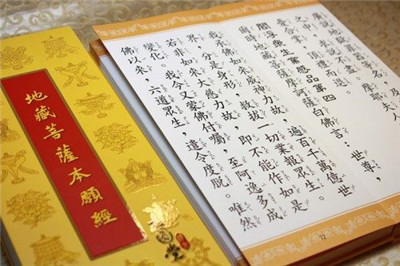 地藏菩薩本願經
摩耶夫
合掌,頂禮而退。
閻浮眾生業感品第四
爾時地藏菩薩摩訶薩白佛言:世尊,
我承佛如來威神力故,遍百千萬億世
界,分是身形,救拔一切業報眾生。
若非如來大慈力故,即不能作如是
變化。我今又蒙佛付囑,至阿逸多成
佛以來,六道眾生,遣令度脫。唯然
12